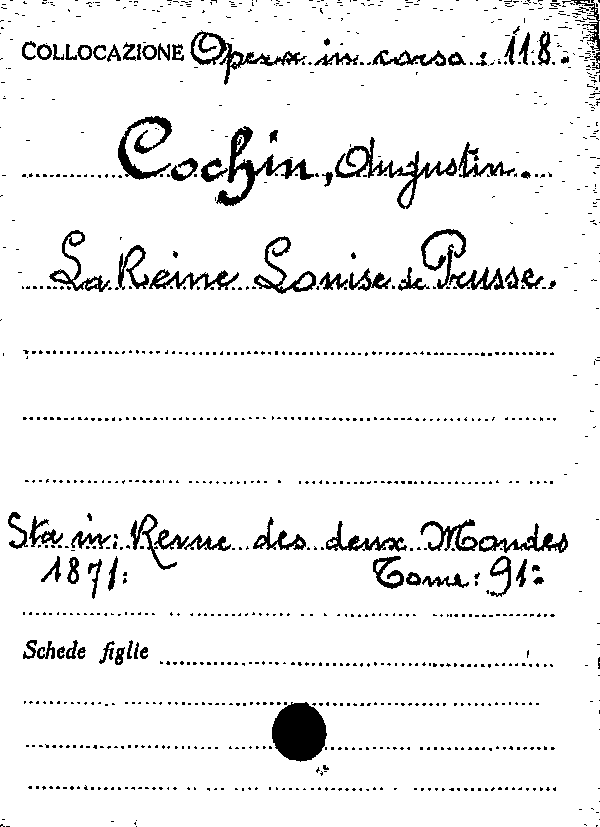 COLLOCAZIONE Opera in corso: 118.
Cochin, Augustin.
La Reine Louise de Prusse.
Sta in: Revue des deux Mondes
1871: Tome: 91:
Schede figlie